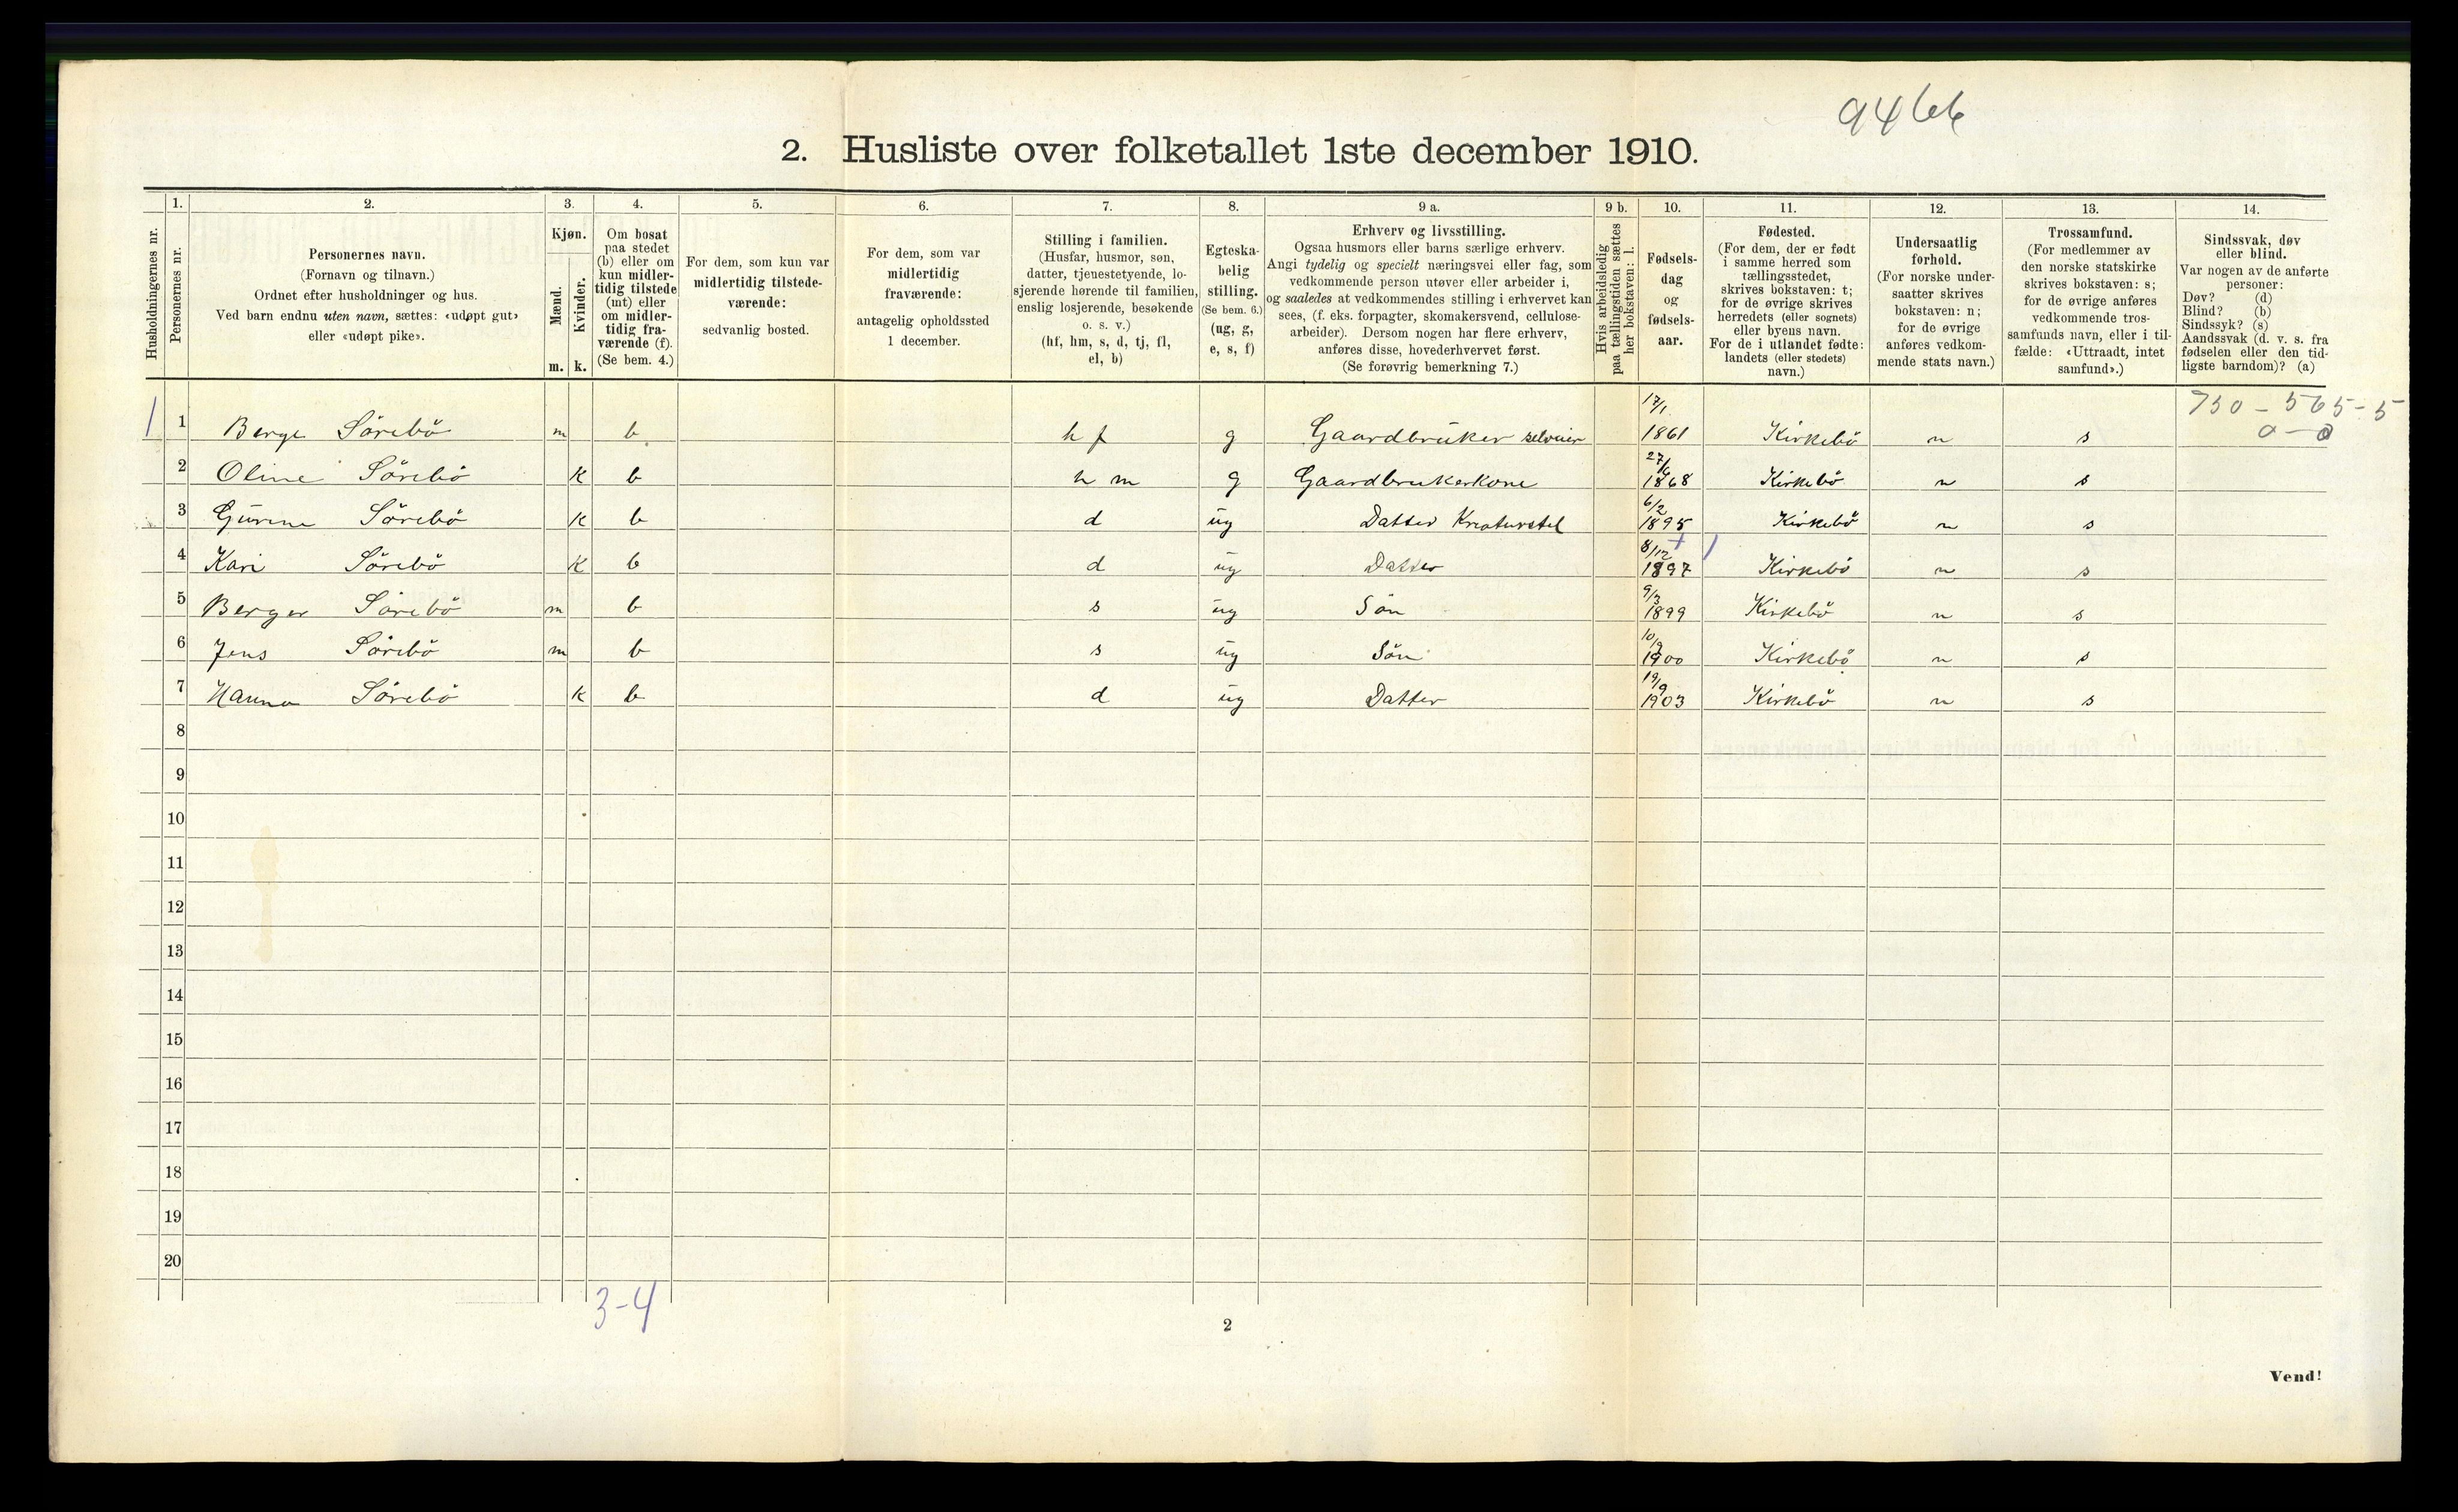 9466
2. Husliste over folketallet 1ste december 1910.
Husholdningernes nr.
1.
Personernes nr.
2.
Personernes navn.
(Fornavn og tilnavn.)
Ordnet efter husholdninger og hus.
Ved barn endnu uten navn, sættes: «udøpt gut»
eller «udøpt pike».
3.
Kjøn.
Mænd.
Kvinder.
m. k.
4.
Om bosat
paa stedet
(b) eller om
kun midler-
tidig tilstede
(mt) eller
om midler-
tidig fra-
værende (f).
(Se bem. 4.)
5.
For dem, som kun var
midlertidig tilstede-
værende:
sedvanlig bosted.
6.
For dem, som var
midlertidig
fraværende:
antagelig opholdssted
1 december.
7.
Stilling i familien.
(Husfar, husmor, søn,
datter, tjenestetyende, lo-
sjerende hørende til familien,
enslig losjerende, besøkende
o. s. v.)
(hf, hm, s, d, tj, fl,
el, b)
8.
Egteska-
belig
stilling.
(Se bem. 6.)
(ug, g,
e, s, f)
9 a.
Erhverv og livsstilling.
Ogsaa husmors eller barns særlige erhverv.
Angi tydelig og specielt næringsvei eller fag, som
vedkommende person utøver eller arbeider i,
og saaledes at vedkommendes stilling i erhvervet kan
sees, (f. eks. forpagter, skomakersvend, cellulose-
arbeider). Dersom nogen har flere erhverv,
anføres disse, hovederhvervet først.
(Se forøvrig bemerkning 7.)
9 b.
Hvis arbeidsledig
paa tællingstiden sættes
her bokstaven: l.
10.
Fødsels-
dag
og
fødsels-
aar.
11.
Fødested.
(For dem, der er født
i samme herred som
tællingsstedet,
skrives bokstaven: t;
for de øvrige skrives
herredets (eller sognets)
eller byens navn.
For de i utlandet fødte:
landets (eller stedets)
navn.)
12.
Undersaatlig
forhold.
(For norske under-
saatter skrives
bokstaven: n;
for de øvrige
anføres vedkom-
mende stats navn.)
13.
Trossamfund.
(For medlemmer av
den norske statskirke
skrives bokstaven: s;
for de øvrige anføres
vedkommende tros-
samfunds navn, eller i til-
fælde: «Uttraadt, intet
samfund».)
14.
Sindssvak, døv
eller blind.
Var nogen av de anførte
personer:
Døv? (d)
Blind? (b)
Sindssyk? (s)
Aandssvak (d. v. s. fra
fødselen eller den tid-
ligste barndom)? (a)
1 1 Berge Sörebö m b hf g Gaardbrüker selveier 17/1 1861 Kirkebö n s 730 - 565-5
0-0
2 Oline Sörebö k b hm g Gaardbrukerkone 27/6 1868 Kirkebö n s
3 Gürine Sörebö k b d üg Datter Kreaturstel 6/2 1895 Kirkebö n s
4 Kari Sörebö k b d üg Datter 8/12 1897 Kirkebö n s
5 Berger Sörebö m b s üg Sön 9/3 1899 Kirkebö n s
6 Jens Sörebö m b s üg Sön 1900 Kirkebö n s
7 Hanna Sörebö k b d üg Datter 19/9 1903 Kirkebö n s
8
9
10
11
12
13
14
15
16
17
18
19
20
3-4
2
Vend!